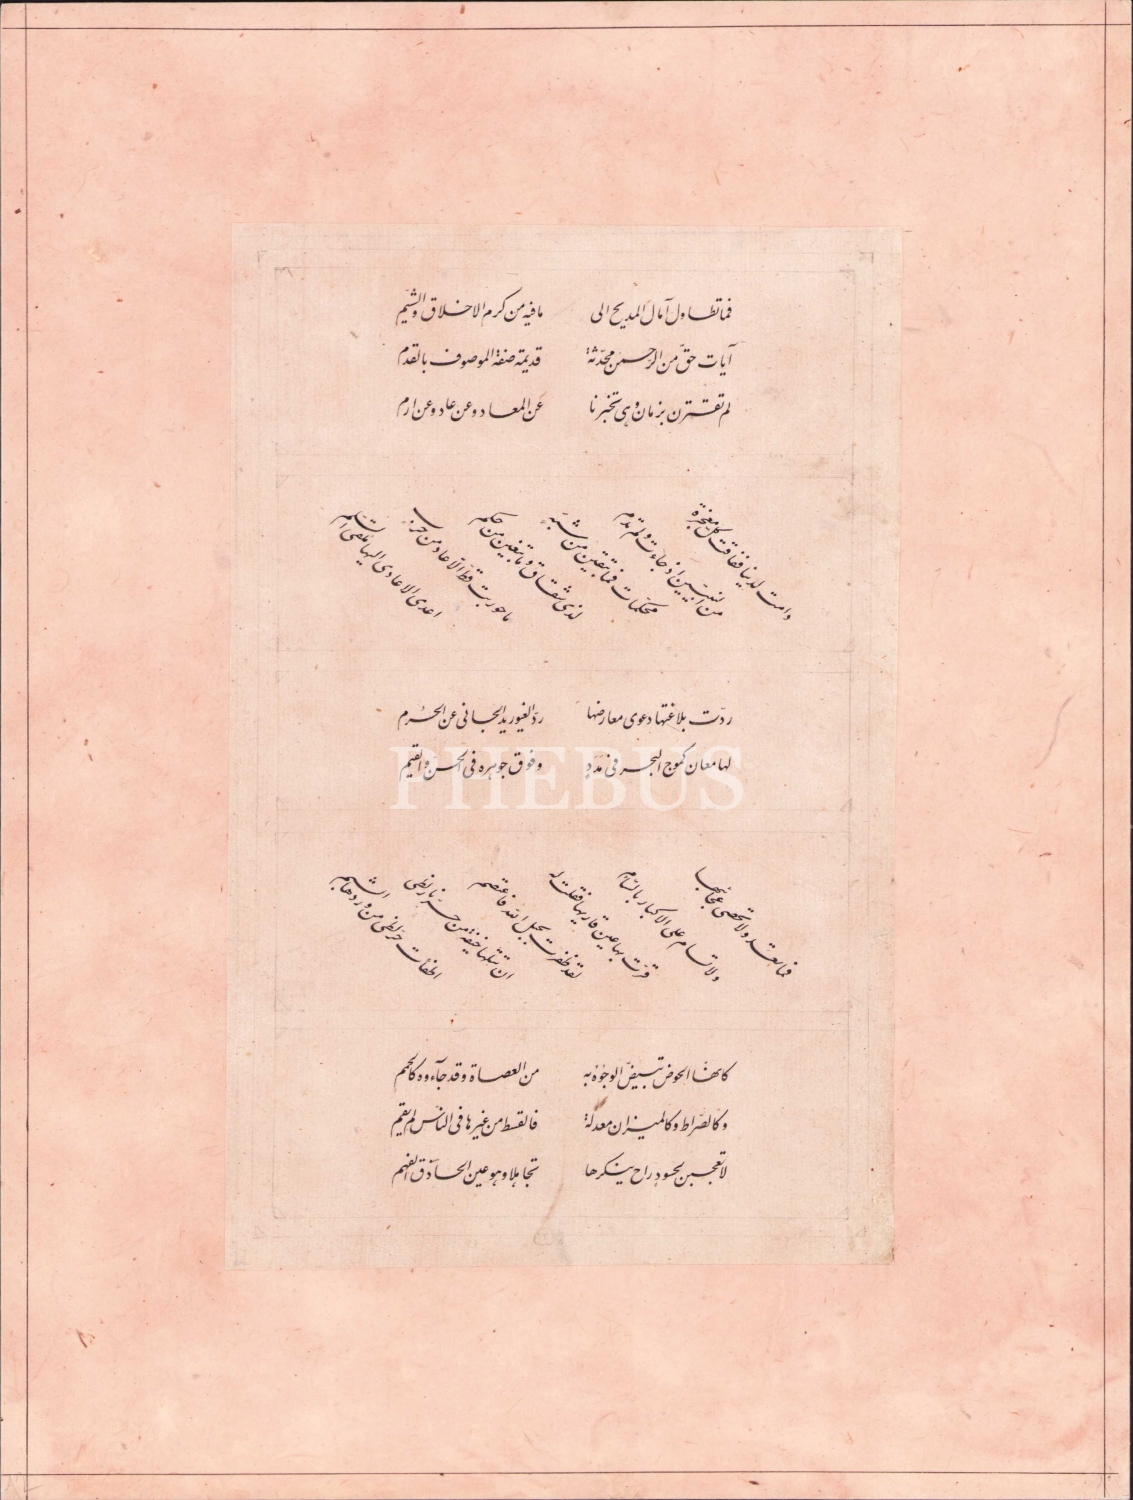 فما تطاول آمال المديح الى ما فيه من كرم الاخلاق والشيم
آيات حقّ من الرّحمن محدثة قديمة صفة الموصوف بالقدم
لم تقترن بزمان وهى تخبرنا عن المعاد وعن عاد وعن ارم
دامت لدينا ففاقت كل معجزة
من النبيين اذ جاءت ولم تدم
محكمات فما تبقين من شبه
لذى شقاق وما تبغين من حكم
ما حوربت قطّ الا عاد من حرب
اعدى الاعادى اليها ملقى السلم
ردّت بلاغتها دعوى معارضها ردّ الغيور يد الجانى عن الحرم
لها معان كموج البحر فى مدد وفوق جوهره فى الحسن والقيم
PHEBUS
فما تعدّ ولا تحصى عجائبها
ولا تسام على الاكثار بالسّام
قرّت بها عين قاريها فقلت له
لقد ظفرت بحبل الله فاعتصم
ان تتلها خيفة من حرّ نار لظى
اطفأت حرّ لظى من وردها الشبم
كانّها الحوض تبيضّ الوجوه به من العصاة وقد جآءوه كالحمم
وكالصّراط وكالميزان معدلة فالقسط من غيرها فى النّاس لم يقم
لا تعجبن لحسود راح ينكرها تجاهلا وهو عين الحاذق الفهم